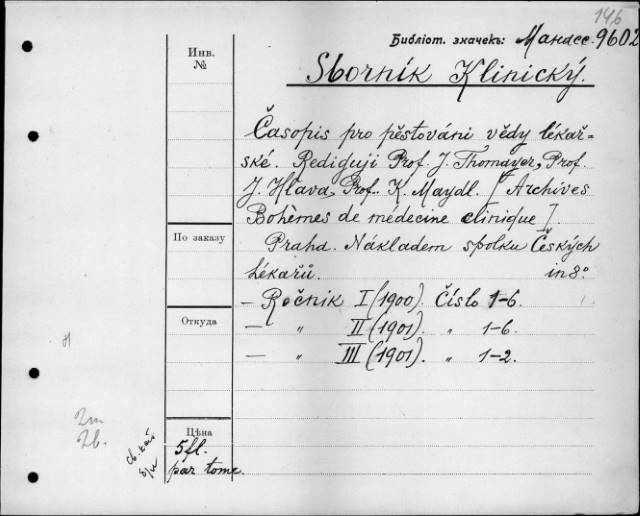 146
Библіот. значекъ: Мансе. 9602
Инв.
№
Sborník Klinický.
Časopis pro pěstováni vědy lékař-
ské. Rediguji Prof. J. Thomayer, Prof.
J. Hlava, Prof. K. Maydl. [Archives
Bohèmes de médecine clinique].
По заказу
Praha. Nákladem spolku Českých
lékařů. in 8°.
— Ročnik I (1900). Číslo 1-6.
Откуда
— „ II (1901). „ 1-6.
— „ III (1901). „ 1-2.
Цѣна
5 fl.
par tome.
2m
2b.